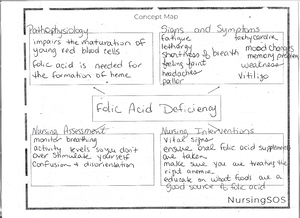 Concept Map
Pathophysiology
impairs the maturation of
young red blood cells
folic acid is needed for
the formation of heme
Signs and Symptoms
fatigue
lethargy
shortness of breath
feeling faint
headaches
pallor
tachycardia
mood changes
memory problems
weakness
Vitiligo
Folic Acid Deficiency
Nursing Assessment
monitor breathing
activity levels so you don't
over stimulate yourself
Confusion & disorientation
Nursing Interventions
Vital signs
ensure oral folic acid supplements
are taken
make sure you are treating the
right anemia
educate on what foods are a
good source of folic acid
NursingSOS